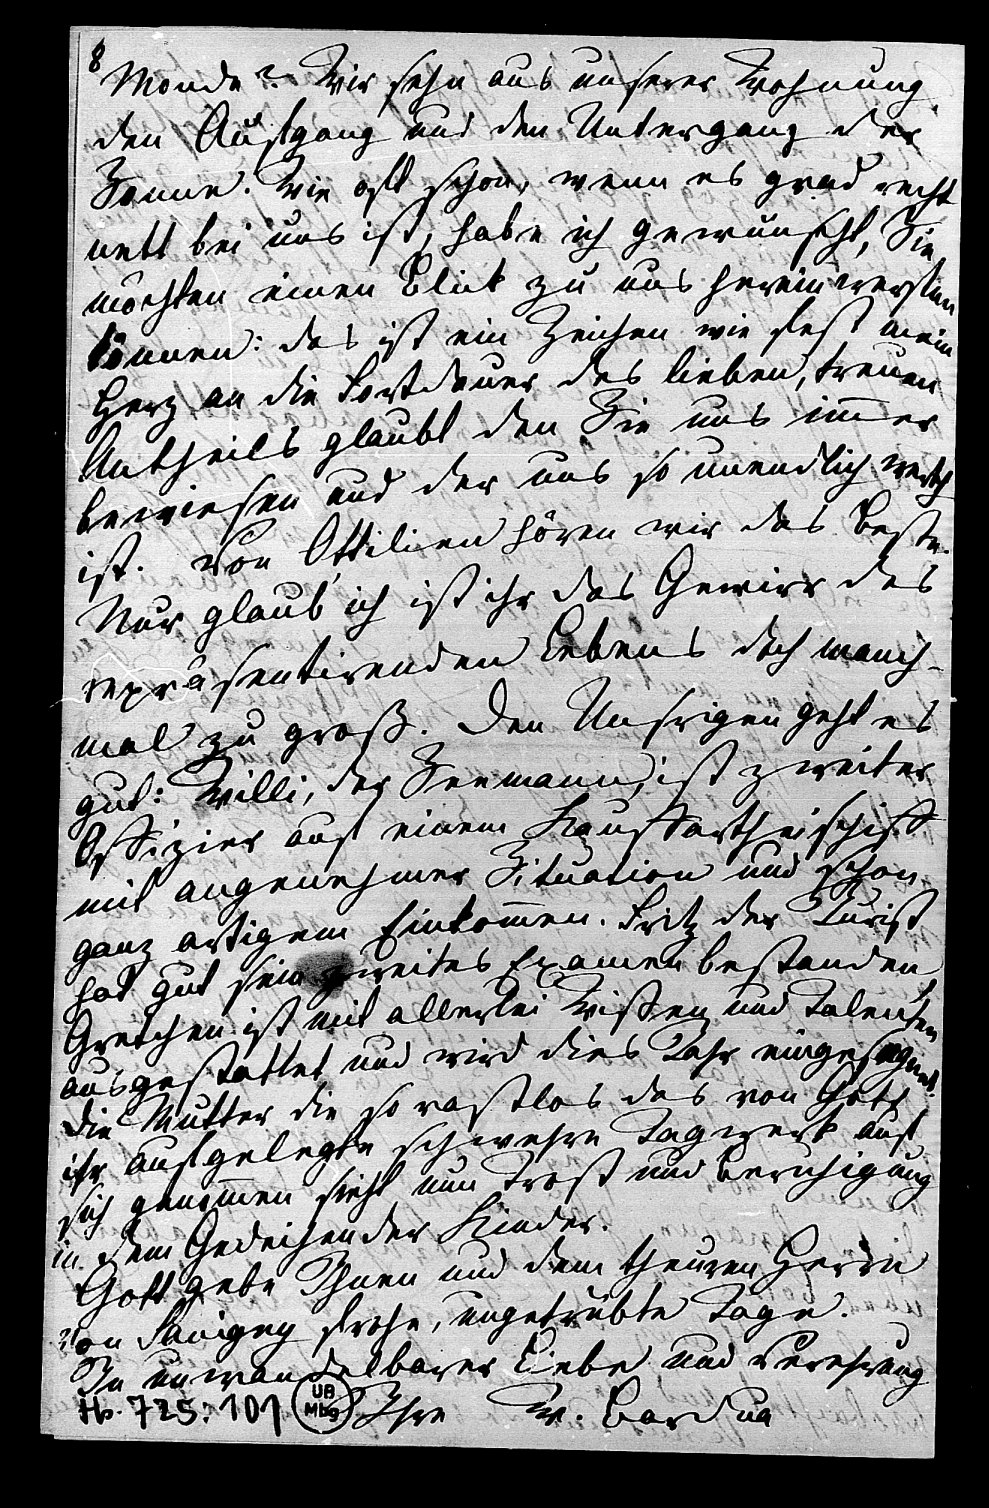 8
Monde? Wir sehn aus unserer Wohnung
den Aufgang und den Untergang der
Sonne. Wie oft schon, wenn es grad recht
nett bei uns ist, habe ich gewünscht, Sie
möchten einen Blick zu uns hereinwerfen
können: das ist ein Zeichen wie fest mein
Herz an die Fortdauer des lieben, treuen
Antheils glaubt den Sie uns im̅er
bewiesen und der uns so unendlich werth
ist. Von Ottilien hören wir das Beste.
Nur glaub' ich ist ihr das Gewirr des
repräsentirenden Lebens doch manch-
mal zu groß. Den Unsrigen geht es
gut: Willi, der Seemann, ist zweiter
Offizier auf einem Kauffartheischiff
mit angenehmer Situation und schon
ganz artigem Einkom̅en. Fritz der Jurist
hat gut sein zweites Examen bestanden
Gretchen ist mit allerlei Wissen und Talenten
ausgestattet und wird dies Jahr eingesegnet.
Die Mutter die so rastlos das von Gott
ihr aufgelegte schwehre Tagwerk auf
sich genom̅en sieht nun Trost und Beruhigung
in dem Gedeihen der Kinder.
Gott gebe Ihnen und dem theuren Herrn
von Savigny frohe, ungetrübte Tage.
In unwandelbarer Liebe und Verehrung
Ihre W. Bardua
Hs. 725:101
UB
Mbg